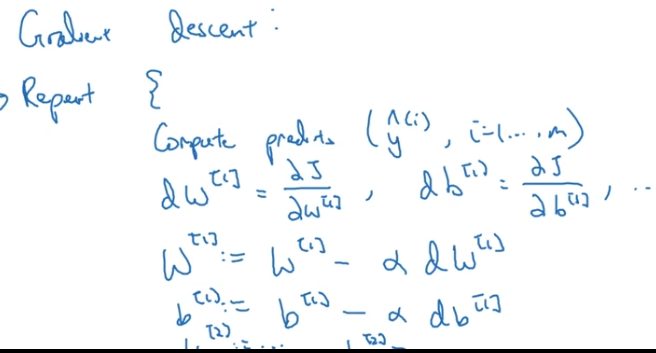 Gradient descent:
Repeat {
Compute predicts (ŷ^(i), i=1...,m)
dw^[1] = ∂J/∂w^[1], db^[1] = ∂J/∂b^[1], ...
W^[1] := W^[1] - α dW^[1]
b^[1] := b^[1] - α db^[1]